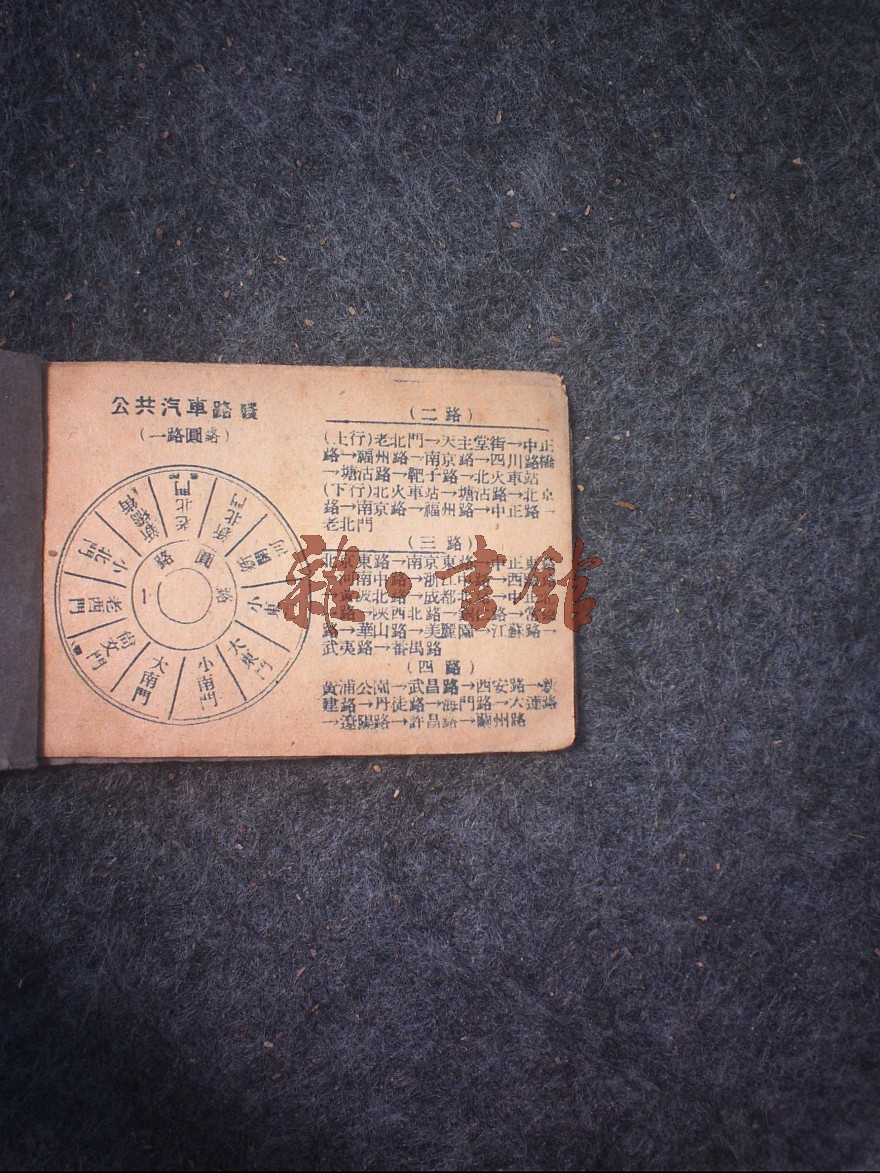 公共汽車路綫
(一路圓路)
老北門
新北門
新開河
小東門
大東門
小南門
大南門
尚文門
老西門
小北門
新橋街
一路圓路
(二路)
(上行)老北門→天主堂街→中正
路→福州路→南京路→四川路橋
→塘沽路→靶子路→北火車站
(下行)北火車站→塘沽路→北京
路→南京路→福州路→中正路→
老北門
(三路)
北京東路→南京東路→中正東路
河南中路→浙江中路→西藏
黃陂北路→成都北
路→陝西北路→銅仁路→常
路→華山路→美麗園→江蘇路→
武夷路→番禺路
(四路)
黃浦公園→武昌路→西安路→
建路→丹徒路→海門路→大連路
→遼陽路→許昌路→蘭州路
雜·書館